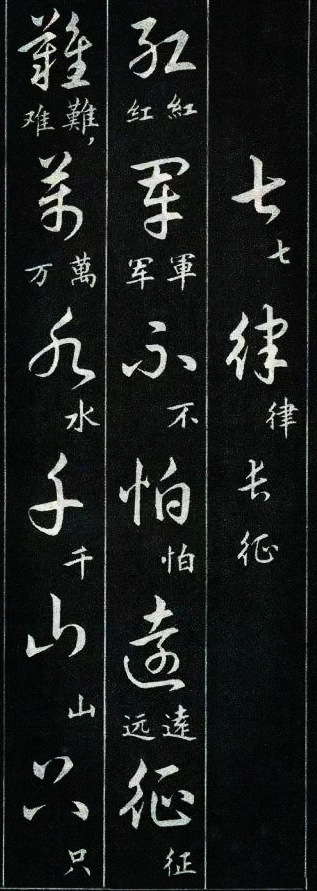 七律 长征
七律
红军不怕远征
红紅军軍不怕远遠征
難萬水千山只
难難,万萬水千山只